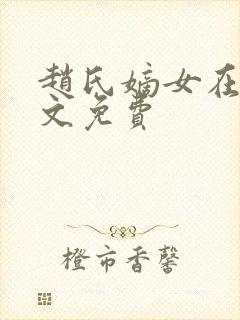 趙氏嫡女在
文免費
橙市香馨